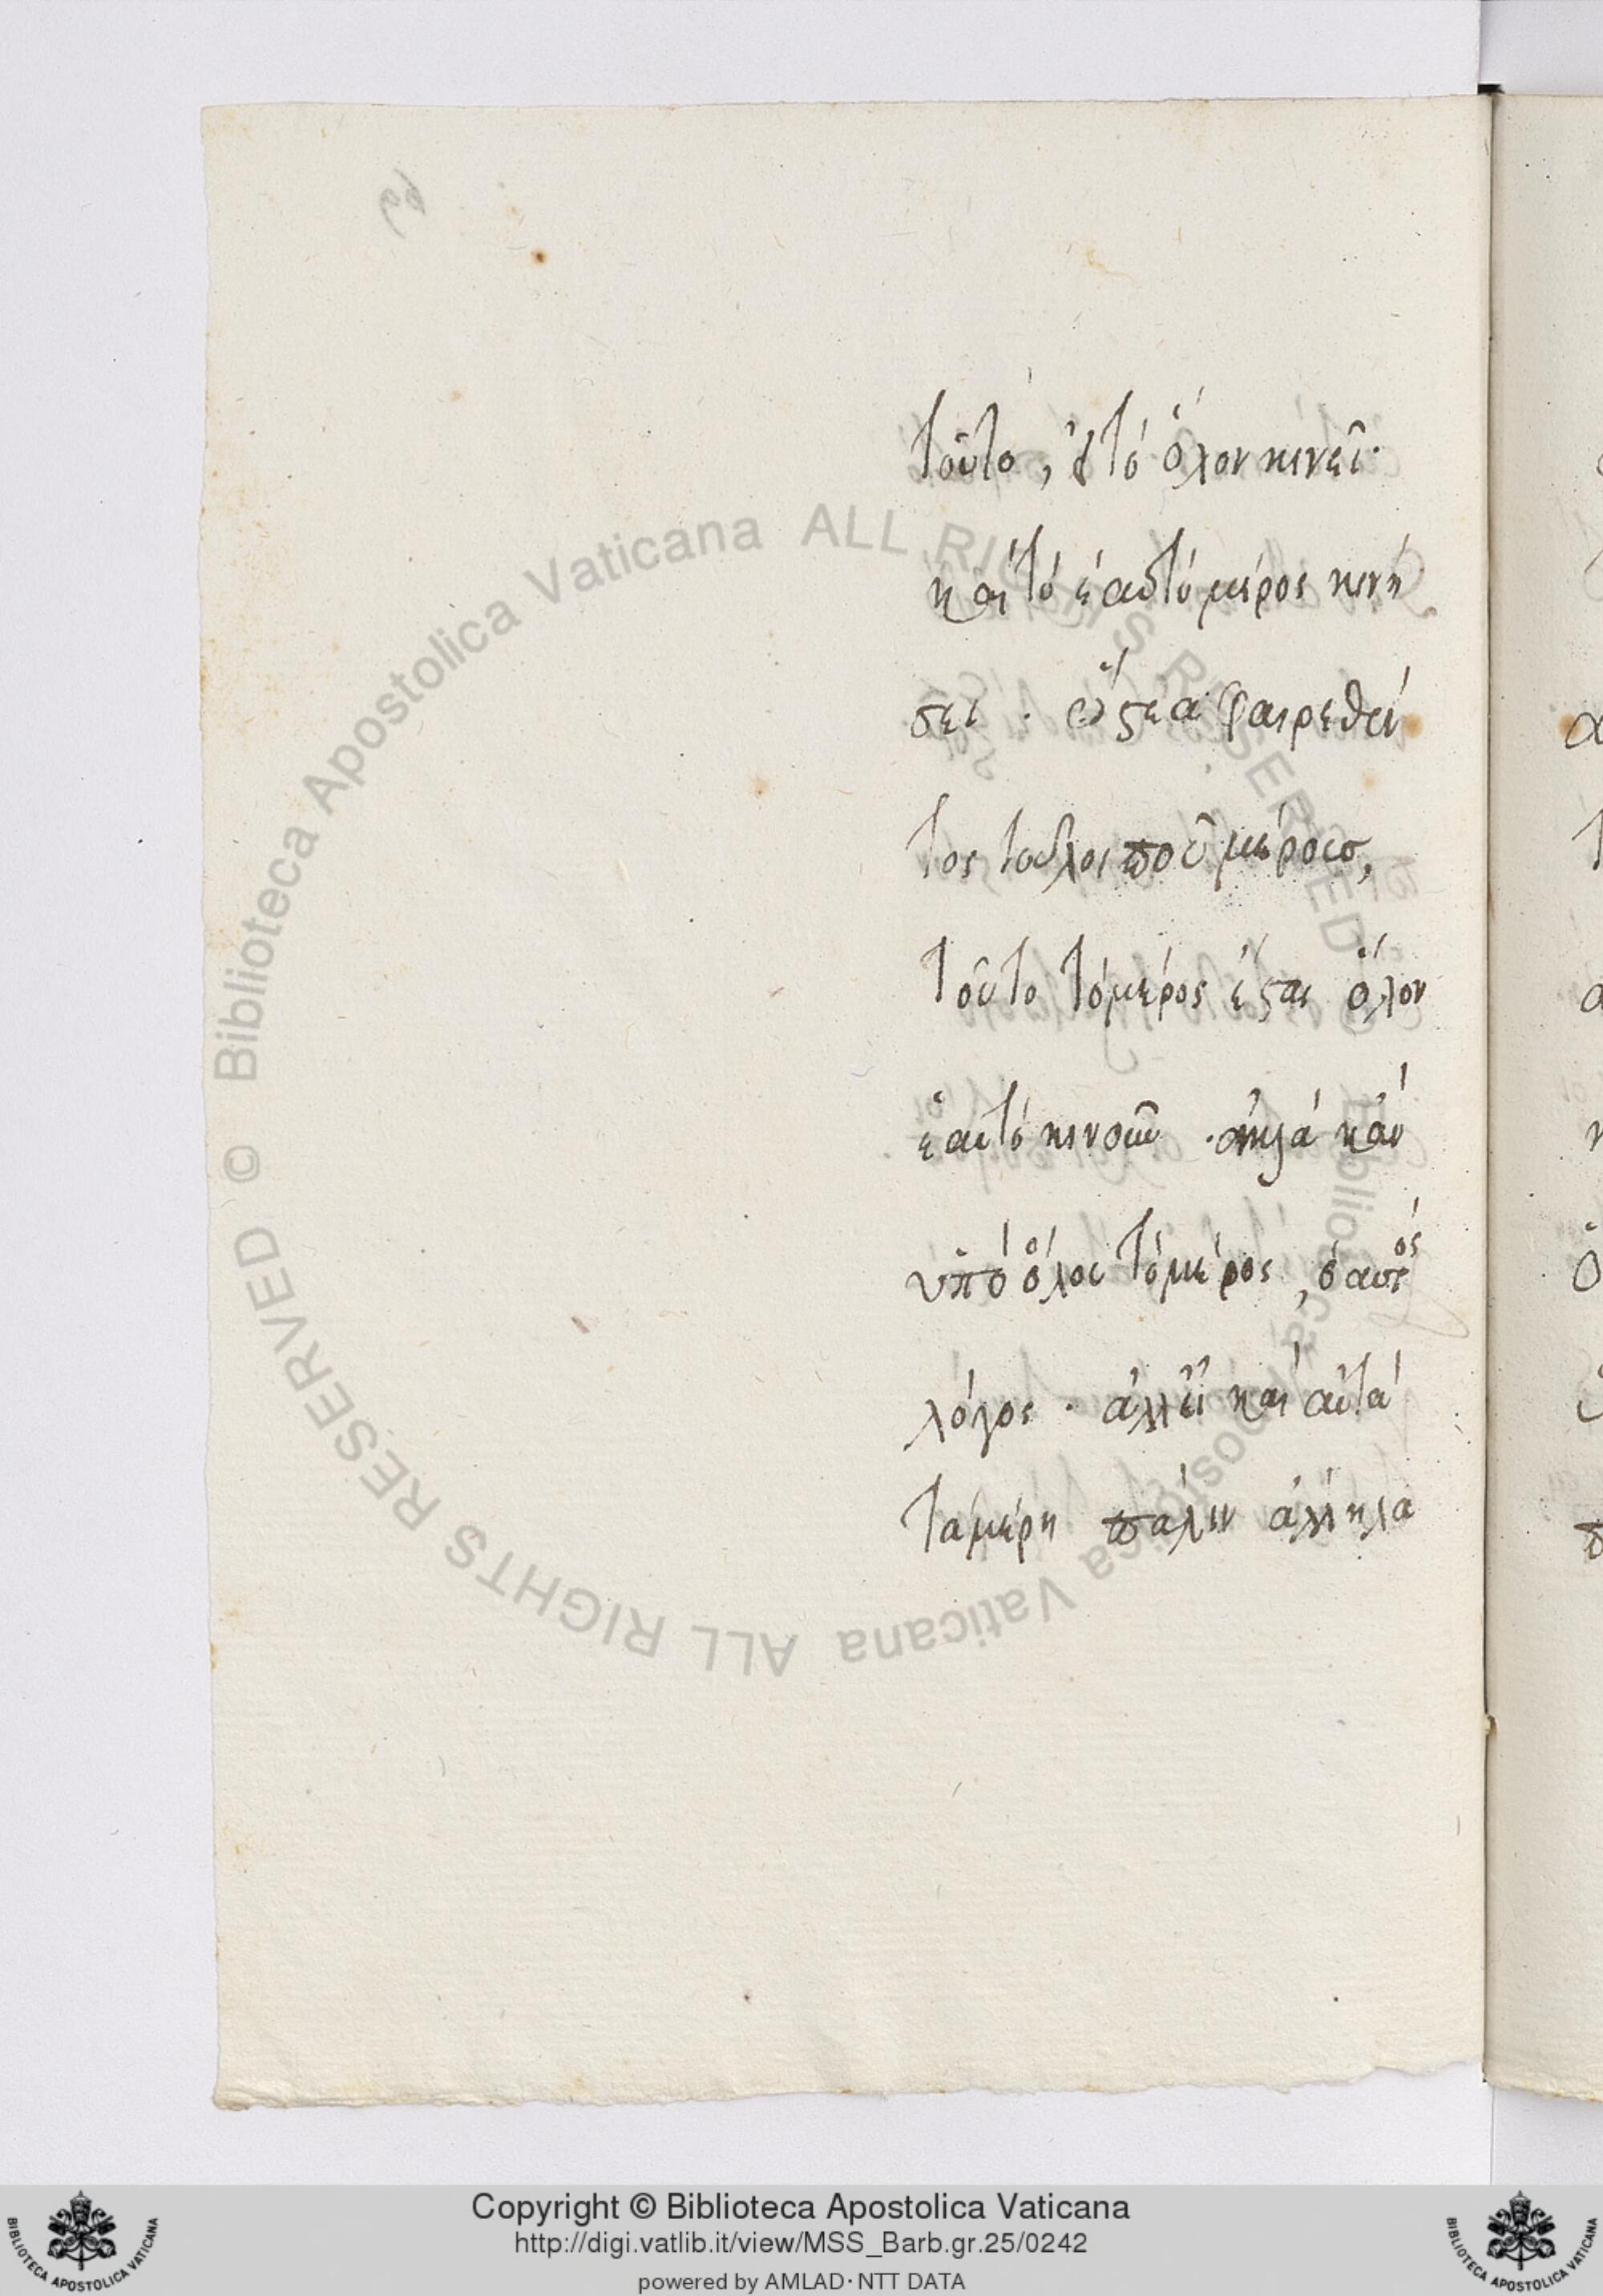 τοῦτο, ὃ τὸ ὅλον κινεῖ·
καὶ τὸ ἑαυτὸ μέρος κινή
σει· ὥστε ἀφαιρεθέν
τος τοῦ λοιποῦ μέρους,
τοῦτο τὸ μέρος ἔσται ὅλον
ἑαυτὸ κινοῦν· ἀλλὰ κἂν
ὑπὸ ὅλου τὸ μέρος, ὁ αὐτὸς
λόγος· ἀλλ' εἰ καὶ αὐτὰ
τὰ μέρη πάλιν ἄλληλα
© Biblioteca Apostolica Vaticana ALL RIGHTS RESERVED
© Biblioteca Apostolica Vaticana ALL RIGHTS RESERVED
Copyright © Biblioteca Apostolica Vaticana
http://digi.vatlib.it/view/MSS_Barb.gr.25/0242
powered by AMLAD·NTT DATA
BIBLIOTECA APOSTOLICA VATICANA
BIBLIOTECA APOSTOLICA VATICANA